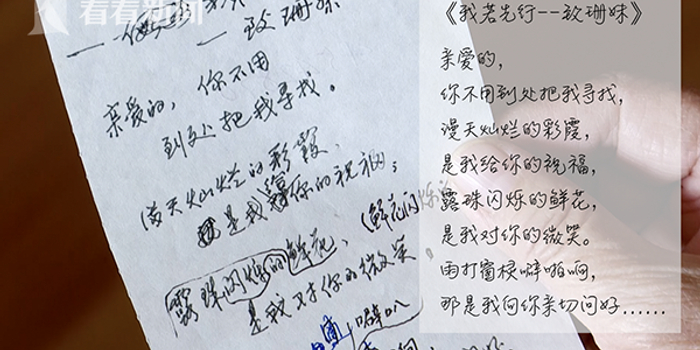 看看新闻
一致珊妹
亲爱的，你不用
到处把我寻找。
满天灿烂的彩霞、
是我 你的祝福；
露珠闪烁的鲜花、(鲜花闪烁
是我对你的微笑。
噼叭
《我若先行--致珊妹》
亲爱的，
你不用到处把我寻找，
漫天灿烂的彩霞，
是我给你的祝福，
露珠闪烁的鲜花，
是我对你的微笑。
雨打窗棂噼啪啊，
那是我向你亲切问好......